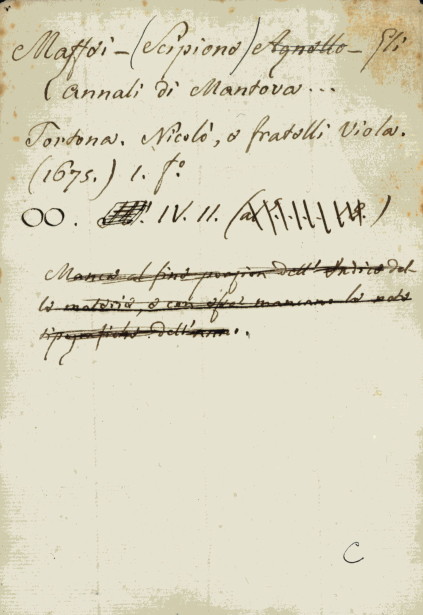 Maffei - (Scipione) Agnello - Gli
annali di Mantova...
Tortona. Nicolò, e fratelli Viola.
(1675.) 1. fo.
OO. IV. II. (
Manca al fine porzion dell' Indice del
le materie, e con essa mancano le note
tipografiche dell'anno.
C